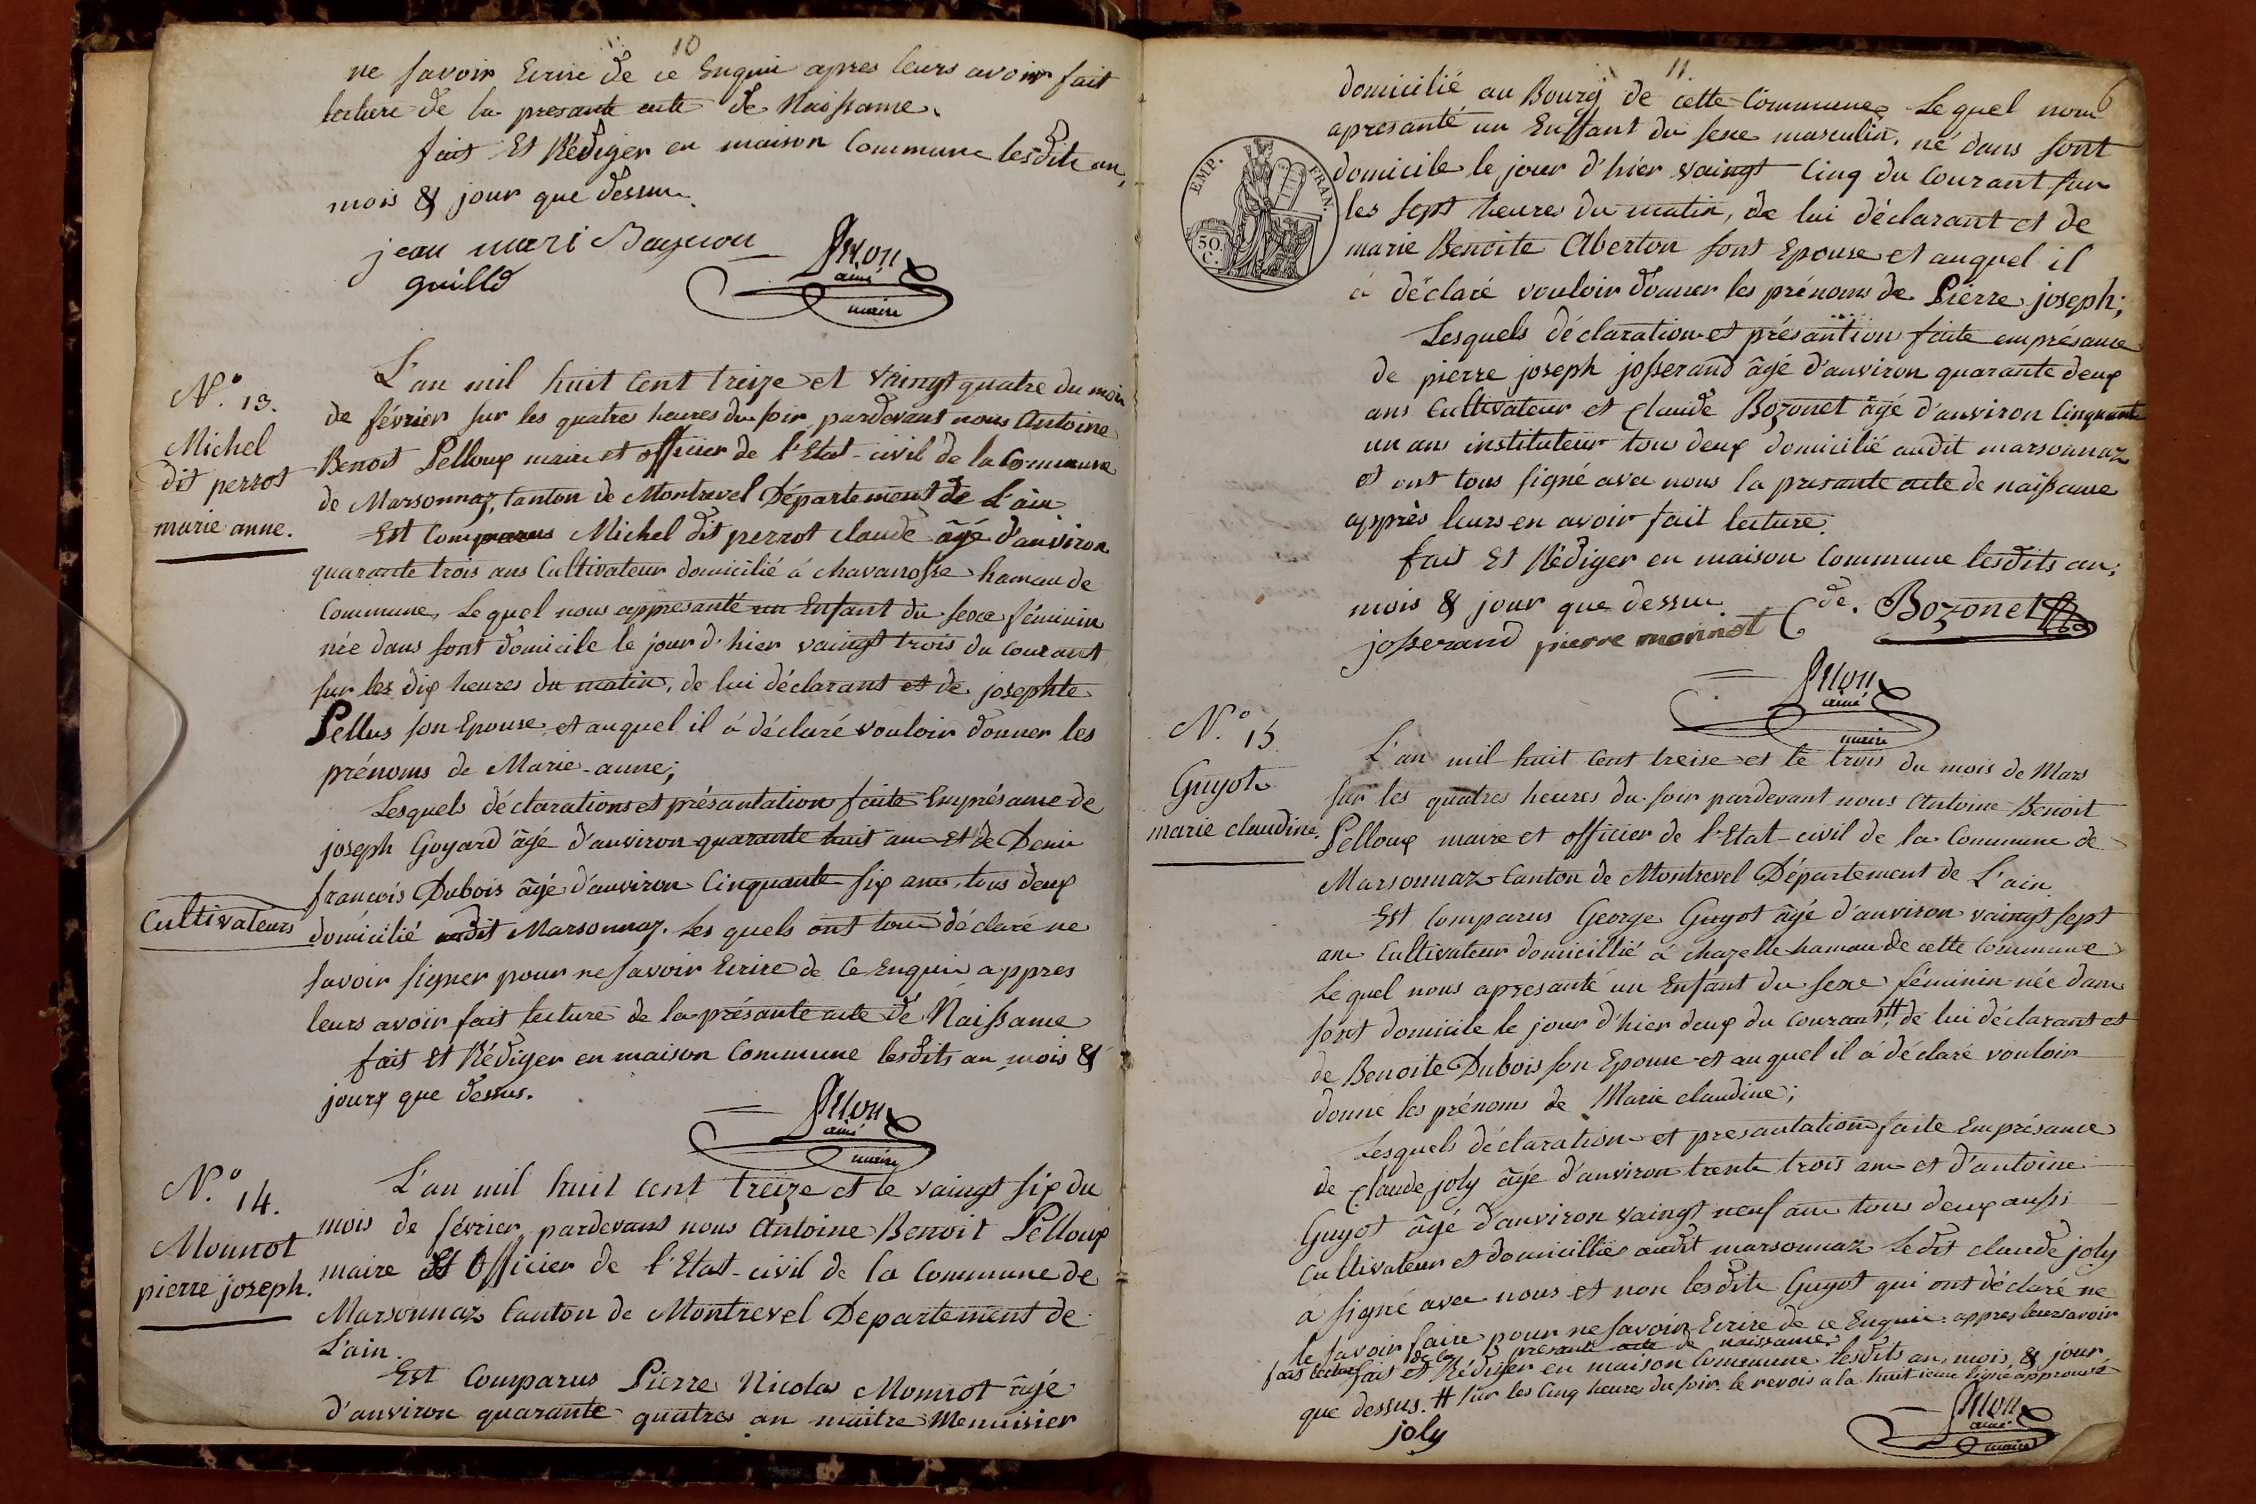 10
ne savoir Ecrire de ce Enquii apres leurs avoir fait
lecture de la presante acte de Naissance.
fait Et Rédiger en maison Commune lesdits an,
mois & jour que dessus.
jean mari
guilld
ainé
maire
N.° 13.
Michel
dit perrot
marie anne.
L'an mil huit Cent treize et vaingt quatre du mois
de février sur les quatres heures du soir, pardevant nous Antoine
Benoit Pelloux maire et officier de l'Etat-civil de la Commune
de Marsonnaz, Canton de Montrevel Département de L'ain
Est Comparus Michel dit perrot claude âgé d'auviron
quarante trois ans Cultivateur domicilié á chavanosse hamau de
Commune, Le quel nous appresanté un Enfant du sexe féminin
née dans sont domicile le jour d'hier vaingt trois du Courant
sur les dix heures du matin, de lui déclarant et de josephte
Pellus son Epouse et auquel il á déclaré vouloir donner les
prénoms de Marie-anne;
Lesquels déclarations et présantation faite Enprésance de
joseph Goyard âgé d'auviron quarante huit ans Et de Deni
francois Dubois âgé d'auviron Cinquante six ans, tous deux
Cultivateurs
domicilié audit Marsonnaz. Les quels ont tous déclaré ne
savoir signer pour ne savoir Ecrire de Ce Enquii appres
leurs avoir fait lecture de la présante acte de Naissance
fait Et Rédiger en maison Commune lesdits an mois &
jours que dessus.
ainé
maire
N.° 14.
Monnot
pierre joseph.
L'an mil huit cent treize et le vaingt six du
mois de février, pardevant nous Antoine Benoit Pelloux
maire Et Officier de l'Etat-civil de la Commune de
Marsonnaz Canton de Montrevel Departement de
L'ain.
Est Comparus Pierre Nicolas Monnot âgé
d'auviron quarante quatres an maitre Menuisier
11.
6
domicilié au Bourg de cette Commune, Le quel nous
apresanté un Enffant du sexe masculin, né dans sont
EMP. FRAN.
50.
C.
domicile le jour d'hier vaingt Cinq du Courant sur
les sept heures du matin, de lui déclarant et de
marie Benoite Aberton sont Epouse et auquel il
á déclaré vouloir donner les prénoms de Pierre joseph;
Lesquels déclaration et présantion faite enprésance
de pierre joseph josserand âgé d'auviron quarante deux
ans Cultivateur et Claude Bozonet âgé d'auviron Cinquante
un ans instituteur tous deux domicilié audit marsonnaz
et ont tous signé avec nous la presante acte de naissance
apprès leurs en avoir fait lecture.
fait Et Rédiger en maison Commune lesdits an;
mois & jour que dessus.
josserand pierre monnot C de. Bozonet
ainé
maire
N.° 15
Guyot
marie claudine.
L'an mil huit Cent treise et le trois du mois de Mars
sur les quatres heures du soir pardevant nous Antoine Benoit
Pelloux maire et officier de l'Etat-civil de la Commune de
Marsonnaz Canton de Montrevel Département de L'ain
Est Comparus George Guyot âgé d'auviron vaingt sept
ans Cultivateur domicillié á chazelle hamau de cette Commune
Le quel nous apresanté un Enfant du sexe féminin née dans
sont domicile le jour d'hier deux du Courant, # de lui déclarant et
de Benoite Dubois son Epouse et auquel il á déclaré vouloir
donné les prénoms de Marie claudine;
Lesquels déclaration et presantation faite Enprésance
de Claude joly âgé d'auviron trente trois ans et d'antoine
Guyot âgé d'auviron vaingt neuf ans tous deux aussi
Cultivateur et domicilliés audit marsonnaz Ledit claude joly
á signé avec nous et non lesdits Guyot qui ont déclaré ne
le savoir faire pour ne savoir Ecrire de ce Enquii appres leurs avoir
fait lecture de la presante acte de naissance
fait et Rédiger en maison Commune lesdits an, mois, & jour
que dessus. # sur les Cinq heures du soir le revois a la huitieme ligne approuvé
joly
ainé
maire